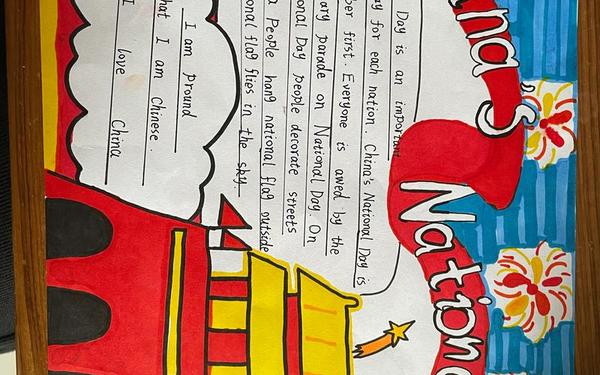 ina's Nationa
Day is an important
ay for each nation. China's National Day is
ber first. Everyone is awed by the
ary parade on National Day. On
onal Day people decorate streets
People hang national flag outside
onal flag flies in the sky.
I am pround
hat I am chinese.
I love China